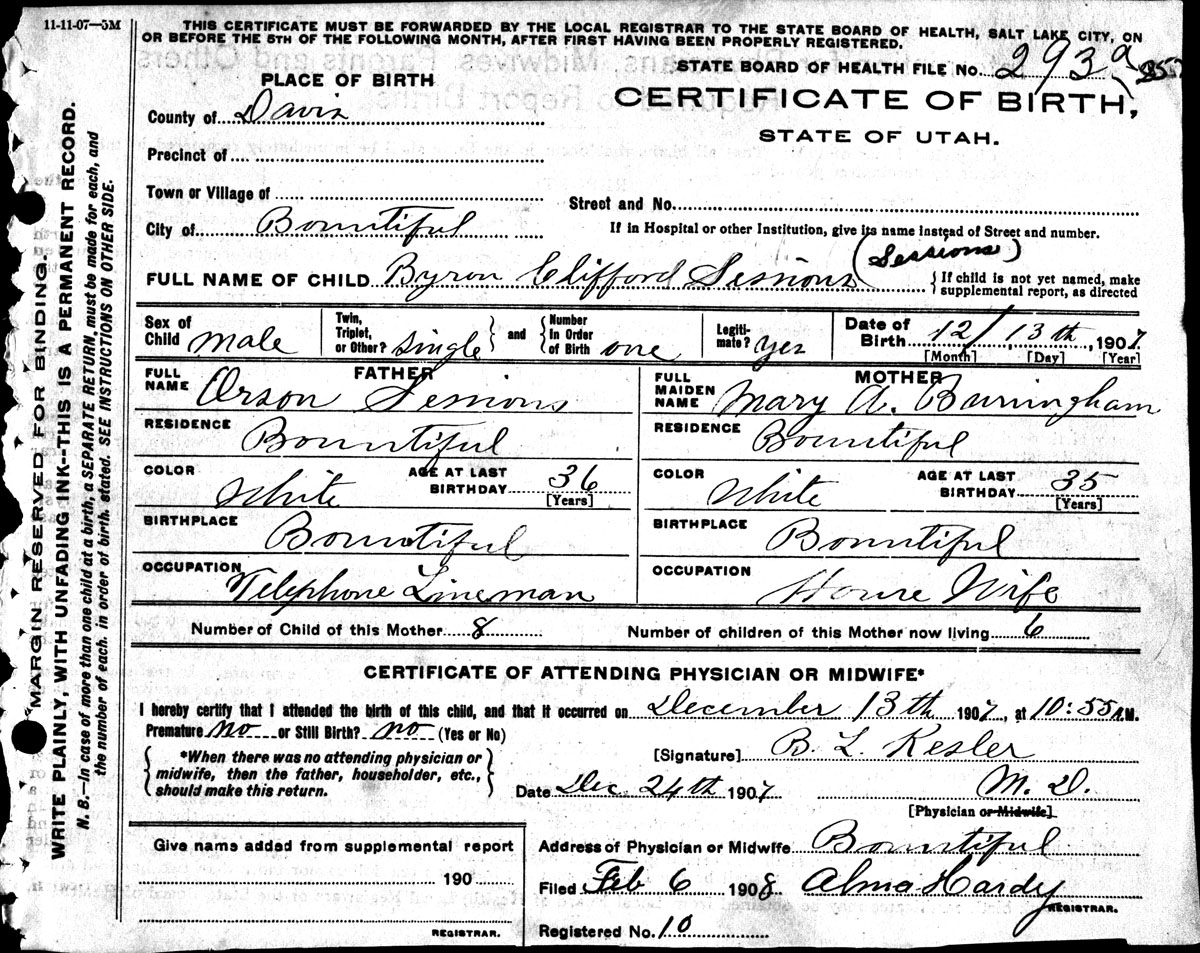 11-11-07—5M
THIS CERTIFICATE MUST BE FORWARDED BY THE LOCAL REGISTRAR TO THE STATE BOARD OF HEALTH, SALT LAKE CITY, ON
OR BEFORE THE 5TH OF THE FOLLOWING MONTH, AFTER FIRST HAVING BEEN PROPERLY REGISTERED.
STATE BOARD OF HEALTH FILE No. 293a
CERTIFICATE OF BIRTH,
STATE OF UTAH.
PLACE OF BIRTH
County of Davis
Precinct of
Town or Village of
Street and No.
City of Bountiful
If in Hospital or other Institution, give its name instead of Street and number.
(Sessions)
FULL NAME OF CHILD Byron Clifford Sessions
{ If child is not yet named, make
supplemental report, as directed
Sex of Child male
Twin, Triplet, or Other? single
and
Number In Order of Birth one
Legitimate? yes
Date of Birth 12/13th, 1907
[Month] [Day] [Year]
FATHER
FULL NAME Orson Sessions
RESIDENCE Bountiful
COLOR White
AGE AT LAST BIRTHDAY 36
[Years]
BIRTHPLACE Bountiful
OCCUPATION Telephone Lineman
MOTHER
FULL MAIDEN NAME Mary A. Burningham
RESIDENCE Bountiful
COLOR White
AGE AT LAST BIRTHDAY 35
[Years]
BIRTHPLACE Bountiful
OCCUPATION House Wife
Number of Child of this Mother 8
Number of children of this Mother now living 6
CERTIFICATE OF ATTENDING PHYSICIAN OR MIDWIFE*
I hereby certify that I attended the birth of this child, and that it occurred on December 13th, 1907, at 10:55 A.M.
Premature no or Still Birth? no (Yes or No)
*When there was no attending physician or
midwife, then the father, householder, etc.,
should make this return.
[Signature] B. L. Kesler
Date Dec 24th 1907 M. D.
[Physician or Midwife]
Give name added from supplemental report
190
REGISTRAR.
Address of Physician or Midwife Bountiful
Filed Feb 6 1908 Alma Hardy
REGISTRAR.
Registered No. 10
MARGIN RESERVED FOR BINDING.
WRITE PLAINLY, WITH UNFADING INK--THIS IS A PERMANENT RECORD.
N. B.—In case of more than one child at a birth, a SEPARATE RETURN must be made for each, and
the number of each, in order of birth, stated. SEE INSTRUCTIONS ON OTHER SIDE.